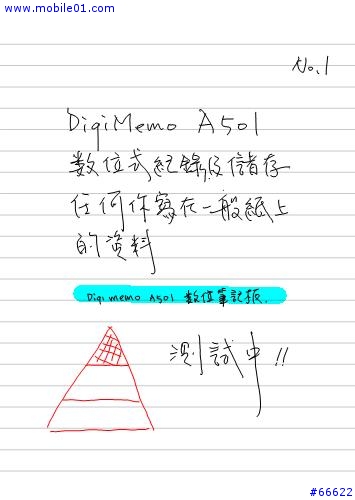 www.mobile01.com
No.1
DigiMemo A501
數位式紀錄及儲存
任何你寫在一般紙上
的資料
Digimemo A501 數位筆記板.
測試中!!
#66622